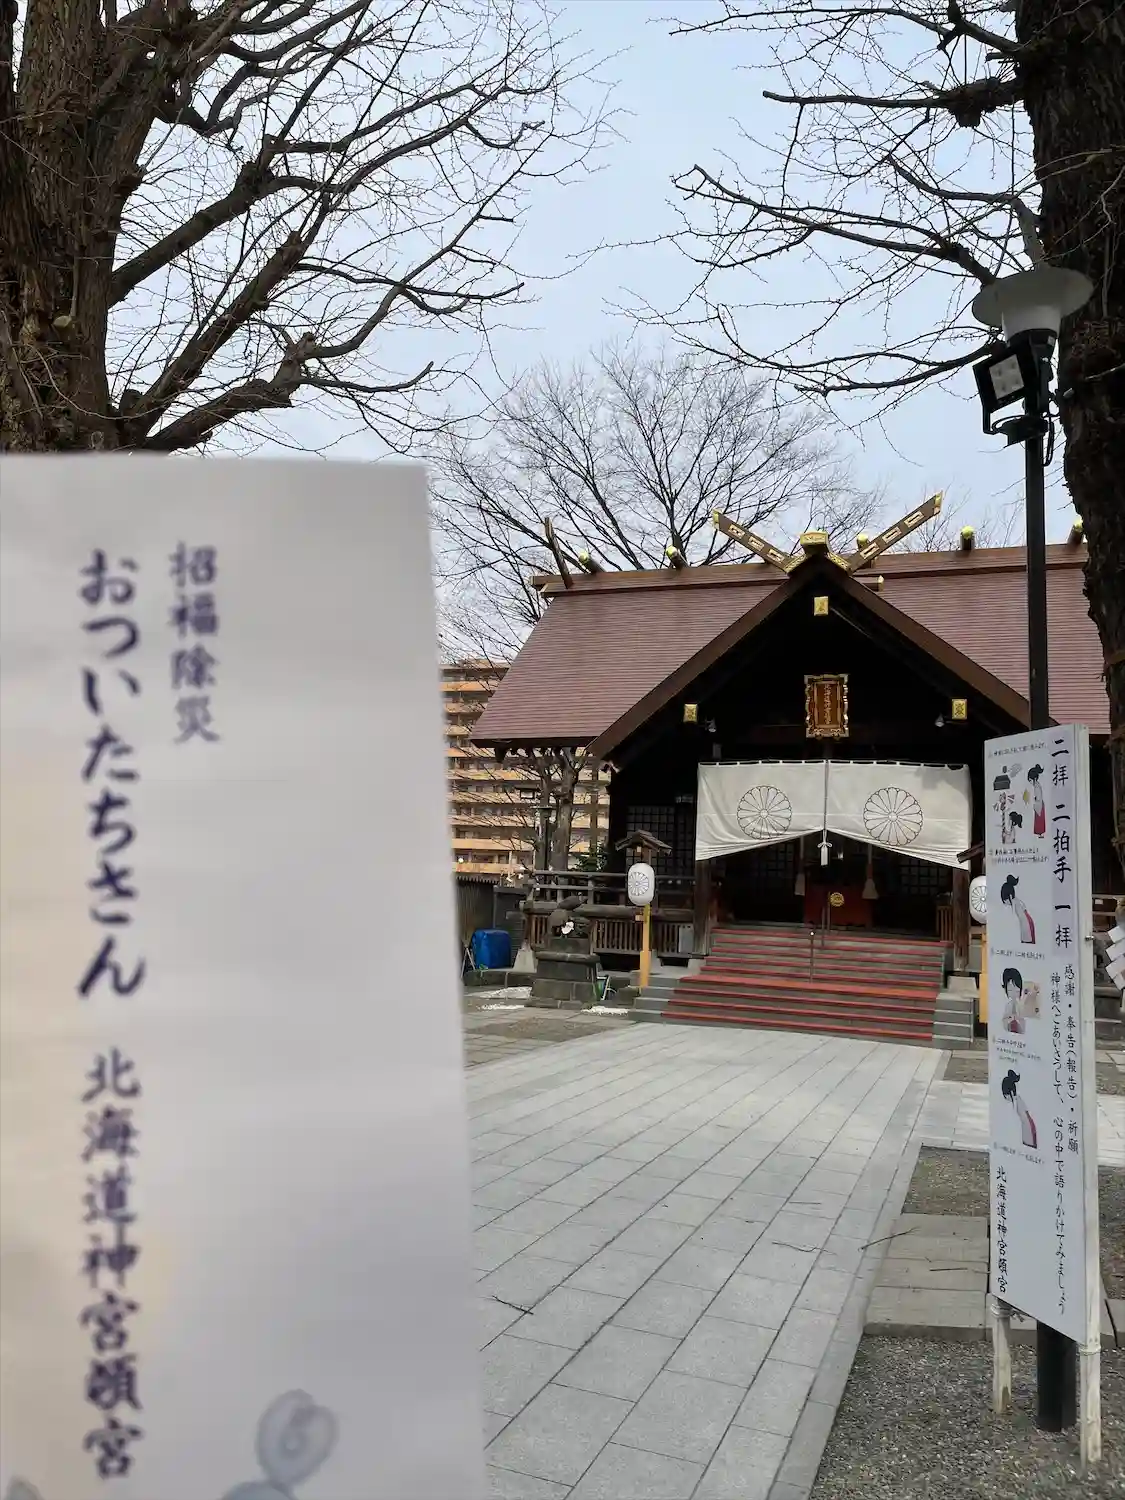 招福除災
おついたちさん 北海道神宮頓宮
二拝 二拍手 一拝
感謝・奉告(報告)・祈願
神様へごあいさつして、心の中で語りかけてみましょう
北海道神宮頓宮